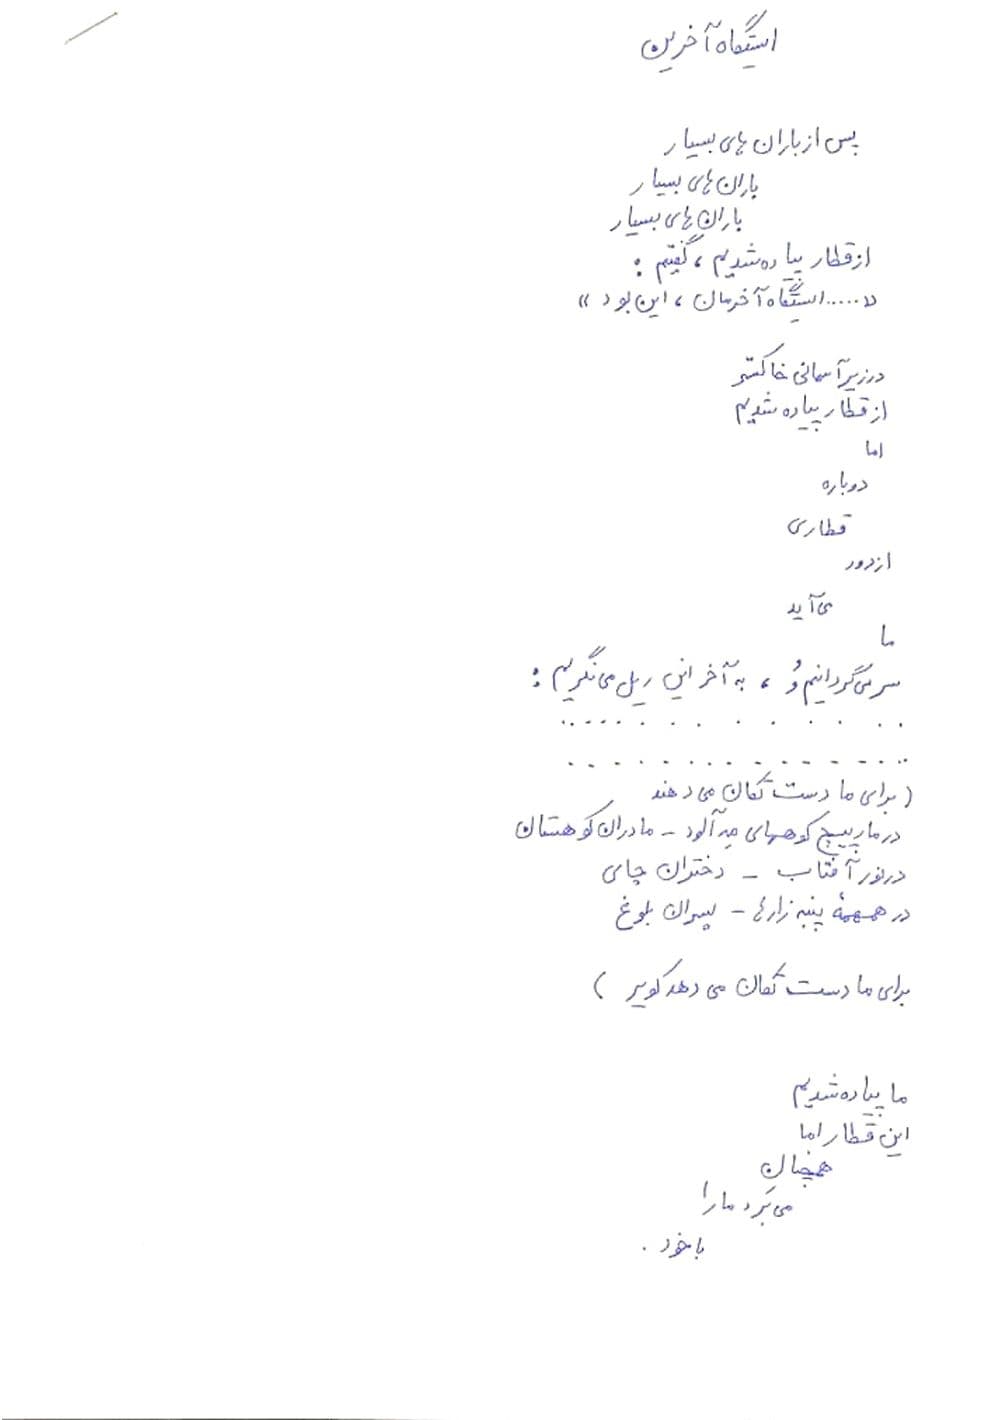 ایستگاه آخرین
پس از باران های بسیار
باران های بسیار
باران های بسیار
از قطار پیاده شدیم ، گفتیم :
« ..... ایستگاه آخرمان ، این بود »
در زیر آسمانی خاکستر
از قطار پیاده شدیم
اما
دوباره
قطاری
از دور
می آید
ما
سر می گردانیم وُ ، به آخر این ریل می نگریم :
. . . . . . . . . . . . .
. . . . . . . . . . . . . . .
( برای ما دست تکان می دهند
در مارپیچ کوههای مه آلود - مادران کوهستان
در نور آفتاب - دختران چای
در همهمهٔ پنبه زارها - پسران بلوغ
برای ما دست تکان می دهد کویر )
ما پیاده شدیم
این قطار اما
همچنان
می بَرد ما را
با خود .